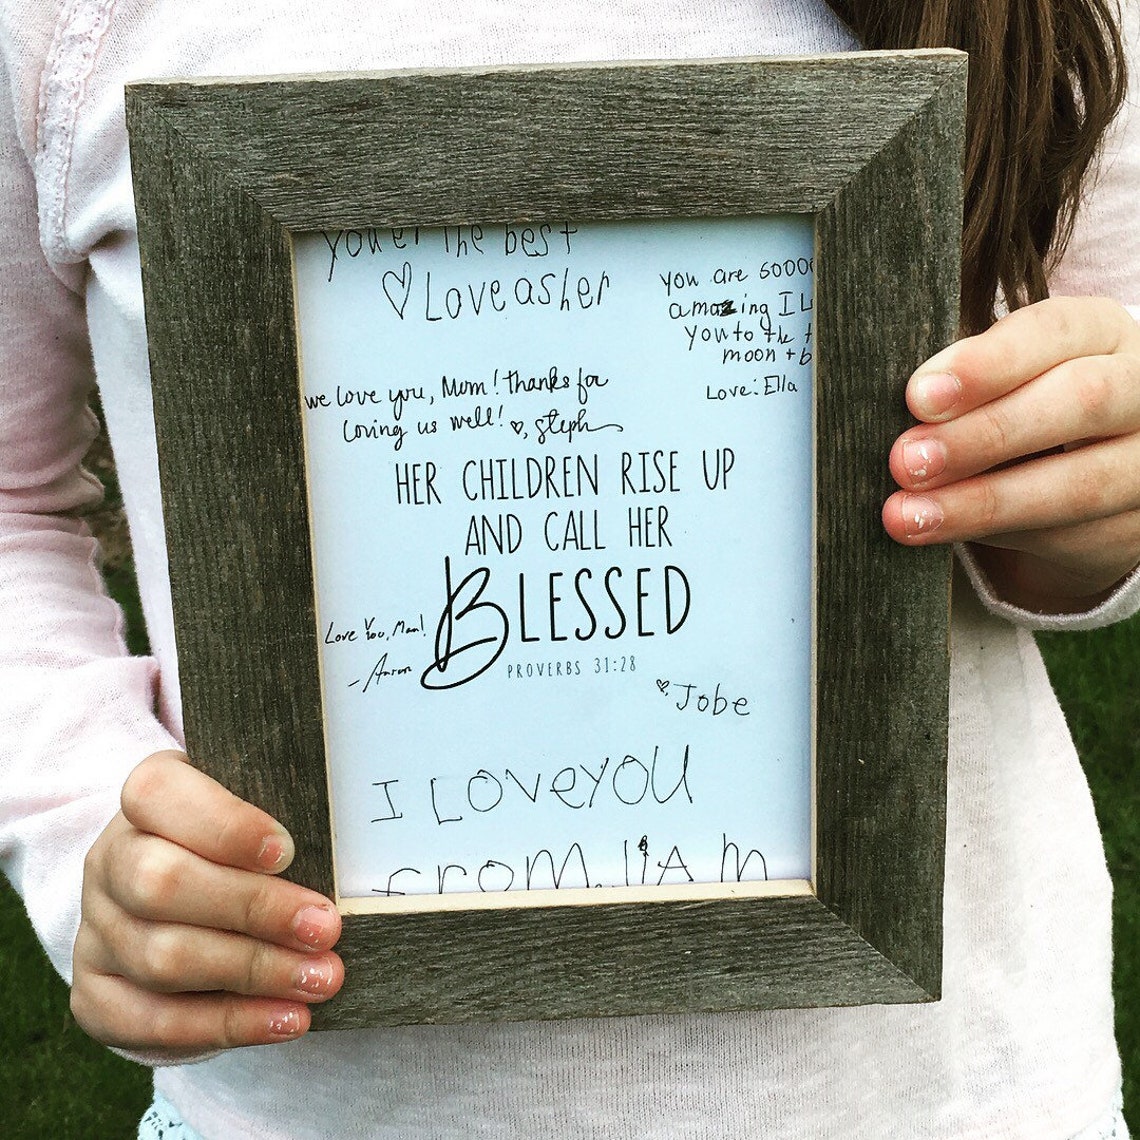 you'er the best
♡ Love asher
you are soooo
amazing I L
you to the
moon + b
Love: Ella
we love you, Mom! thanks for
loving us well! ♡, Steph
HER CHILDREN RISE UP
AND CALL HER
BLESSED
PROVERBS 31:28
Love You, Mom!
- Aaron
♡, Jobe
I Love you
from liAm